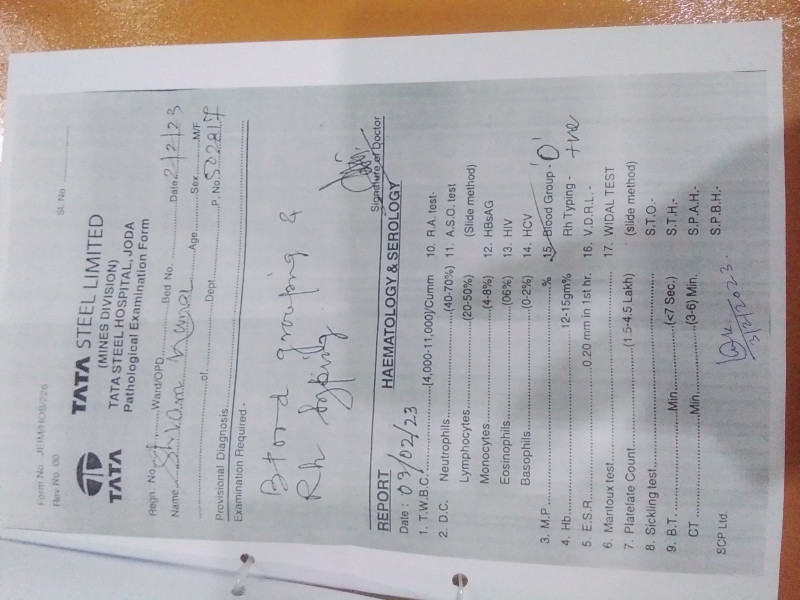 Form No. JEIM/HOS/226
Rev No. 00
Sl. No.
TATA
TATA STEEL LIMITED
(MINES DIVISION)
TATA STEEL HOSPITAL, JODA
Pathological Examination Form
Regn. No. Ward/OPD Bed No. Date 2/2/23
Name Age Sex M/F
of Dept. P. No 502817
Provisional Diagnosis
Examination Required -
Blood grouping &
Rh typing
Signature of Doctor
REPORT HAEMATOLOGY & SEROLOGY
Date : 03/02/23
1. T.W.B.C. (4,000-11,000)/Cumm
2. D.C. Neutrophils (40-70%)
Lymphocytes (20-50%)
Monocytes (4-8%)
Eosinophils (06%)
Basophils (0-2%)
3. M.P. %
4. Hb 12-15gm%
5. E.S.R. 0.20 mm in 1st hr.
6. Mantoux test
7. Platelate Count (1.5-4.5 Lakh)
8. Sickling test
9. B.T. Min. (<7 Sec.)
CT Min. (3-6) Min.
10. R.A. test-
11. A.S.O. test
(Slide method)
12. HBsAG
13. HIV
14. HCV
15. Blood Group - 'O'
Rh Typing - +ve
16. V.D.R.L. -
17. WIDAL TEST
(slide method)
S.T.O.-
S.T.H.-
S.P.A.H.-
S.P.B.H.-
SCP Ltd.
3/2/2023.